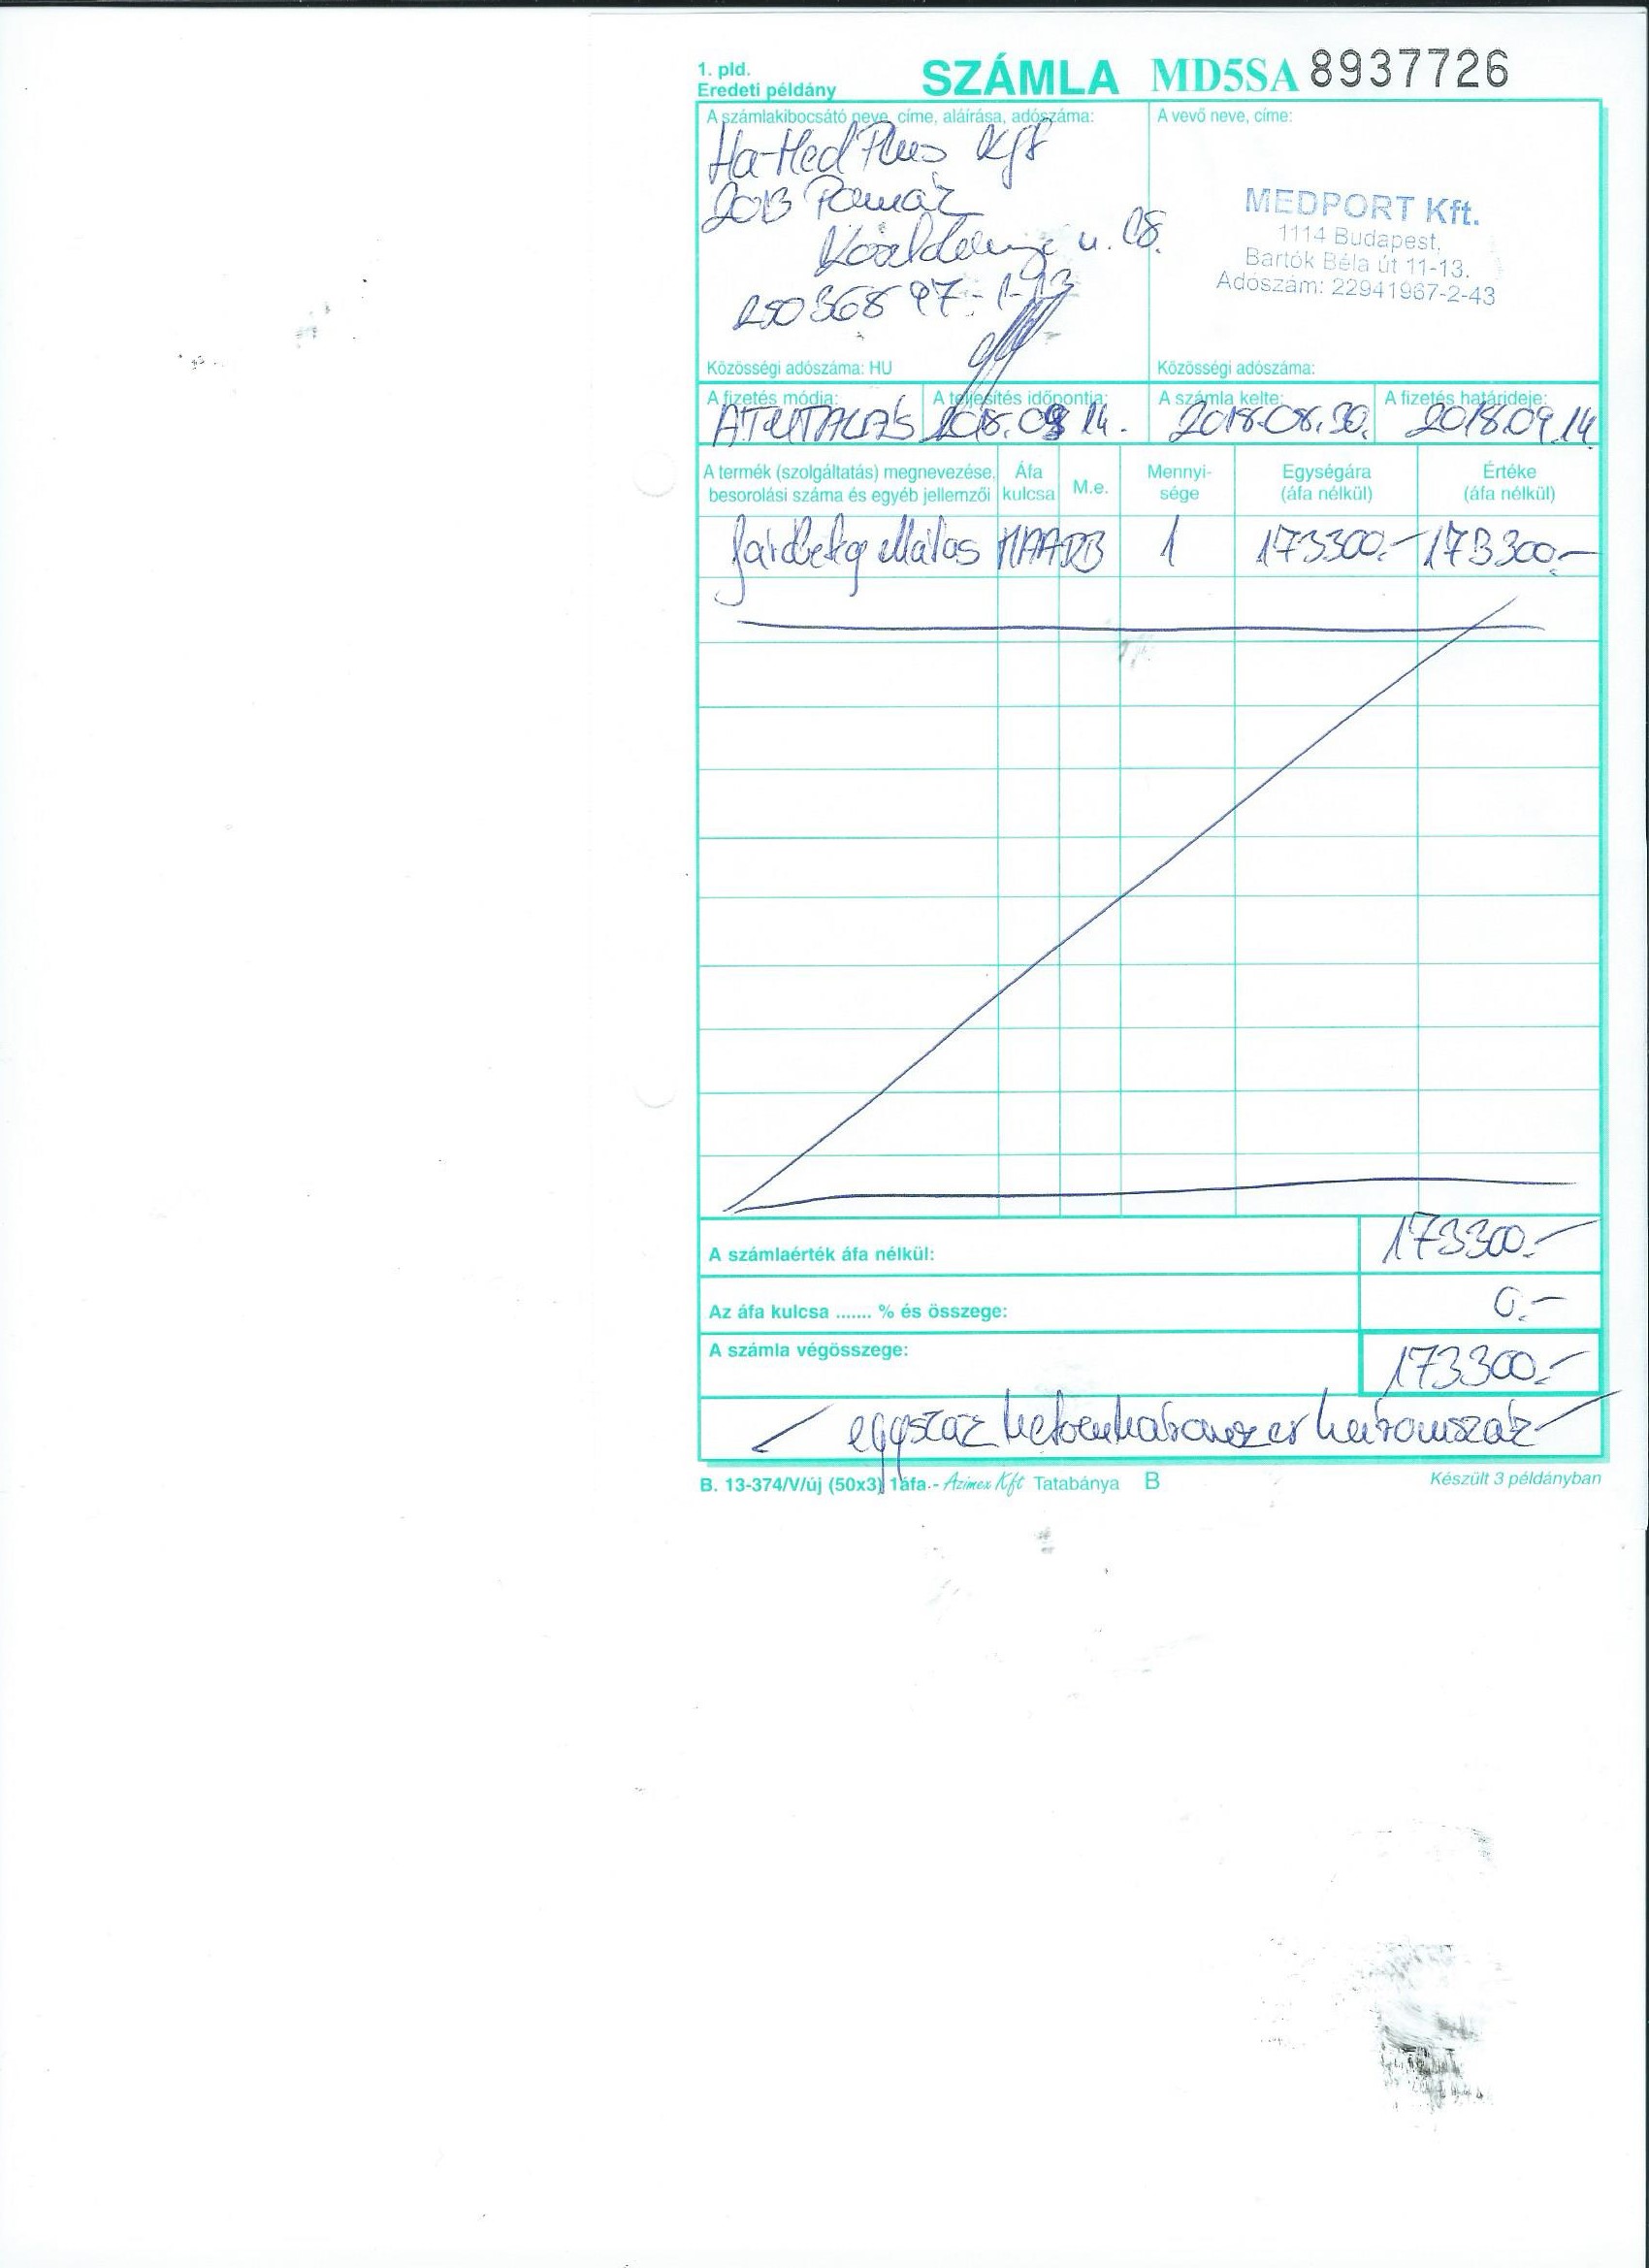 1. pld.
Eredeti példány
SZÁMLA MD5SA 8937726
A számlakibocsátó neve, címe, aláírása, adószáma:
Ha-Med Plus Kft
2013 Pomáz
u. 18.
97-1-13
Közösségi adószáma: HU
A vevő neve, címe:
MEDPORT Kft.
1114 Budapest,
Bartók Béla út 11-13.
Adószám: 22941967-2-43
Közösségi adószáma:
A fizetés módja: A teljesítés időpontja: A számla kelte: A fizetés határideje:
ÁTUTALÁS 2018.09 14. 2018.08.30. 2018.09.14
A termék (szolgáltatás) megnevezése, besorolási száma és egyéb jellemzői Áfa kulcsa M.e. Mennyi-sége Egységára (áfa nélkül) Értéke (áfa nélkül)
járóbeteg ellátás MAA DB 1 173300.- 173300.-
A számlaérték áfa nélkül: 173300.-
Az áfa kulcsa ....... % és összege: 0.-
A számla végösszege: 173300.-
egyszáz hetvenháromezer háromszáz
B. 13-374/V/új (50x3) 1áfa.- Azimex Kft Tatabánya B Készült 3 példányban